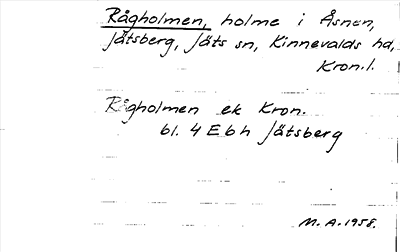 Rågholmen, holme i Åsnen,
Jätsberg, Jäts sn, Kinnevalds hd,
Kron.l.
Rågholmen ek Kron.
bl. 4 E b h Jätsberg
M. A. 1958.